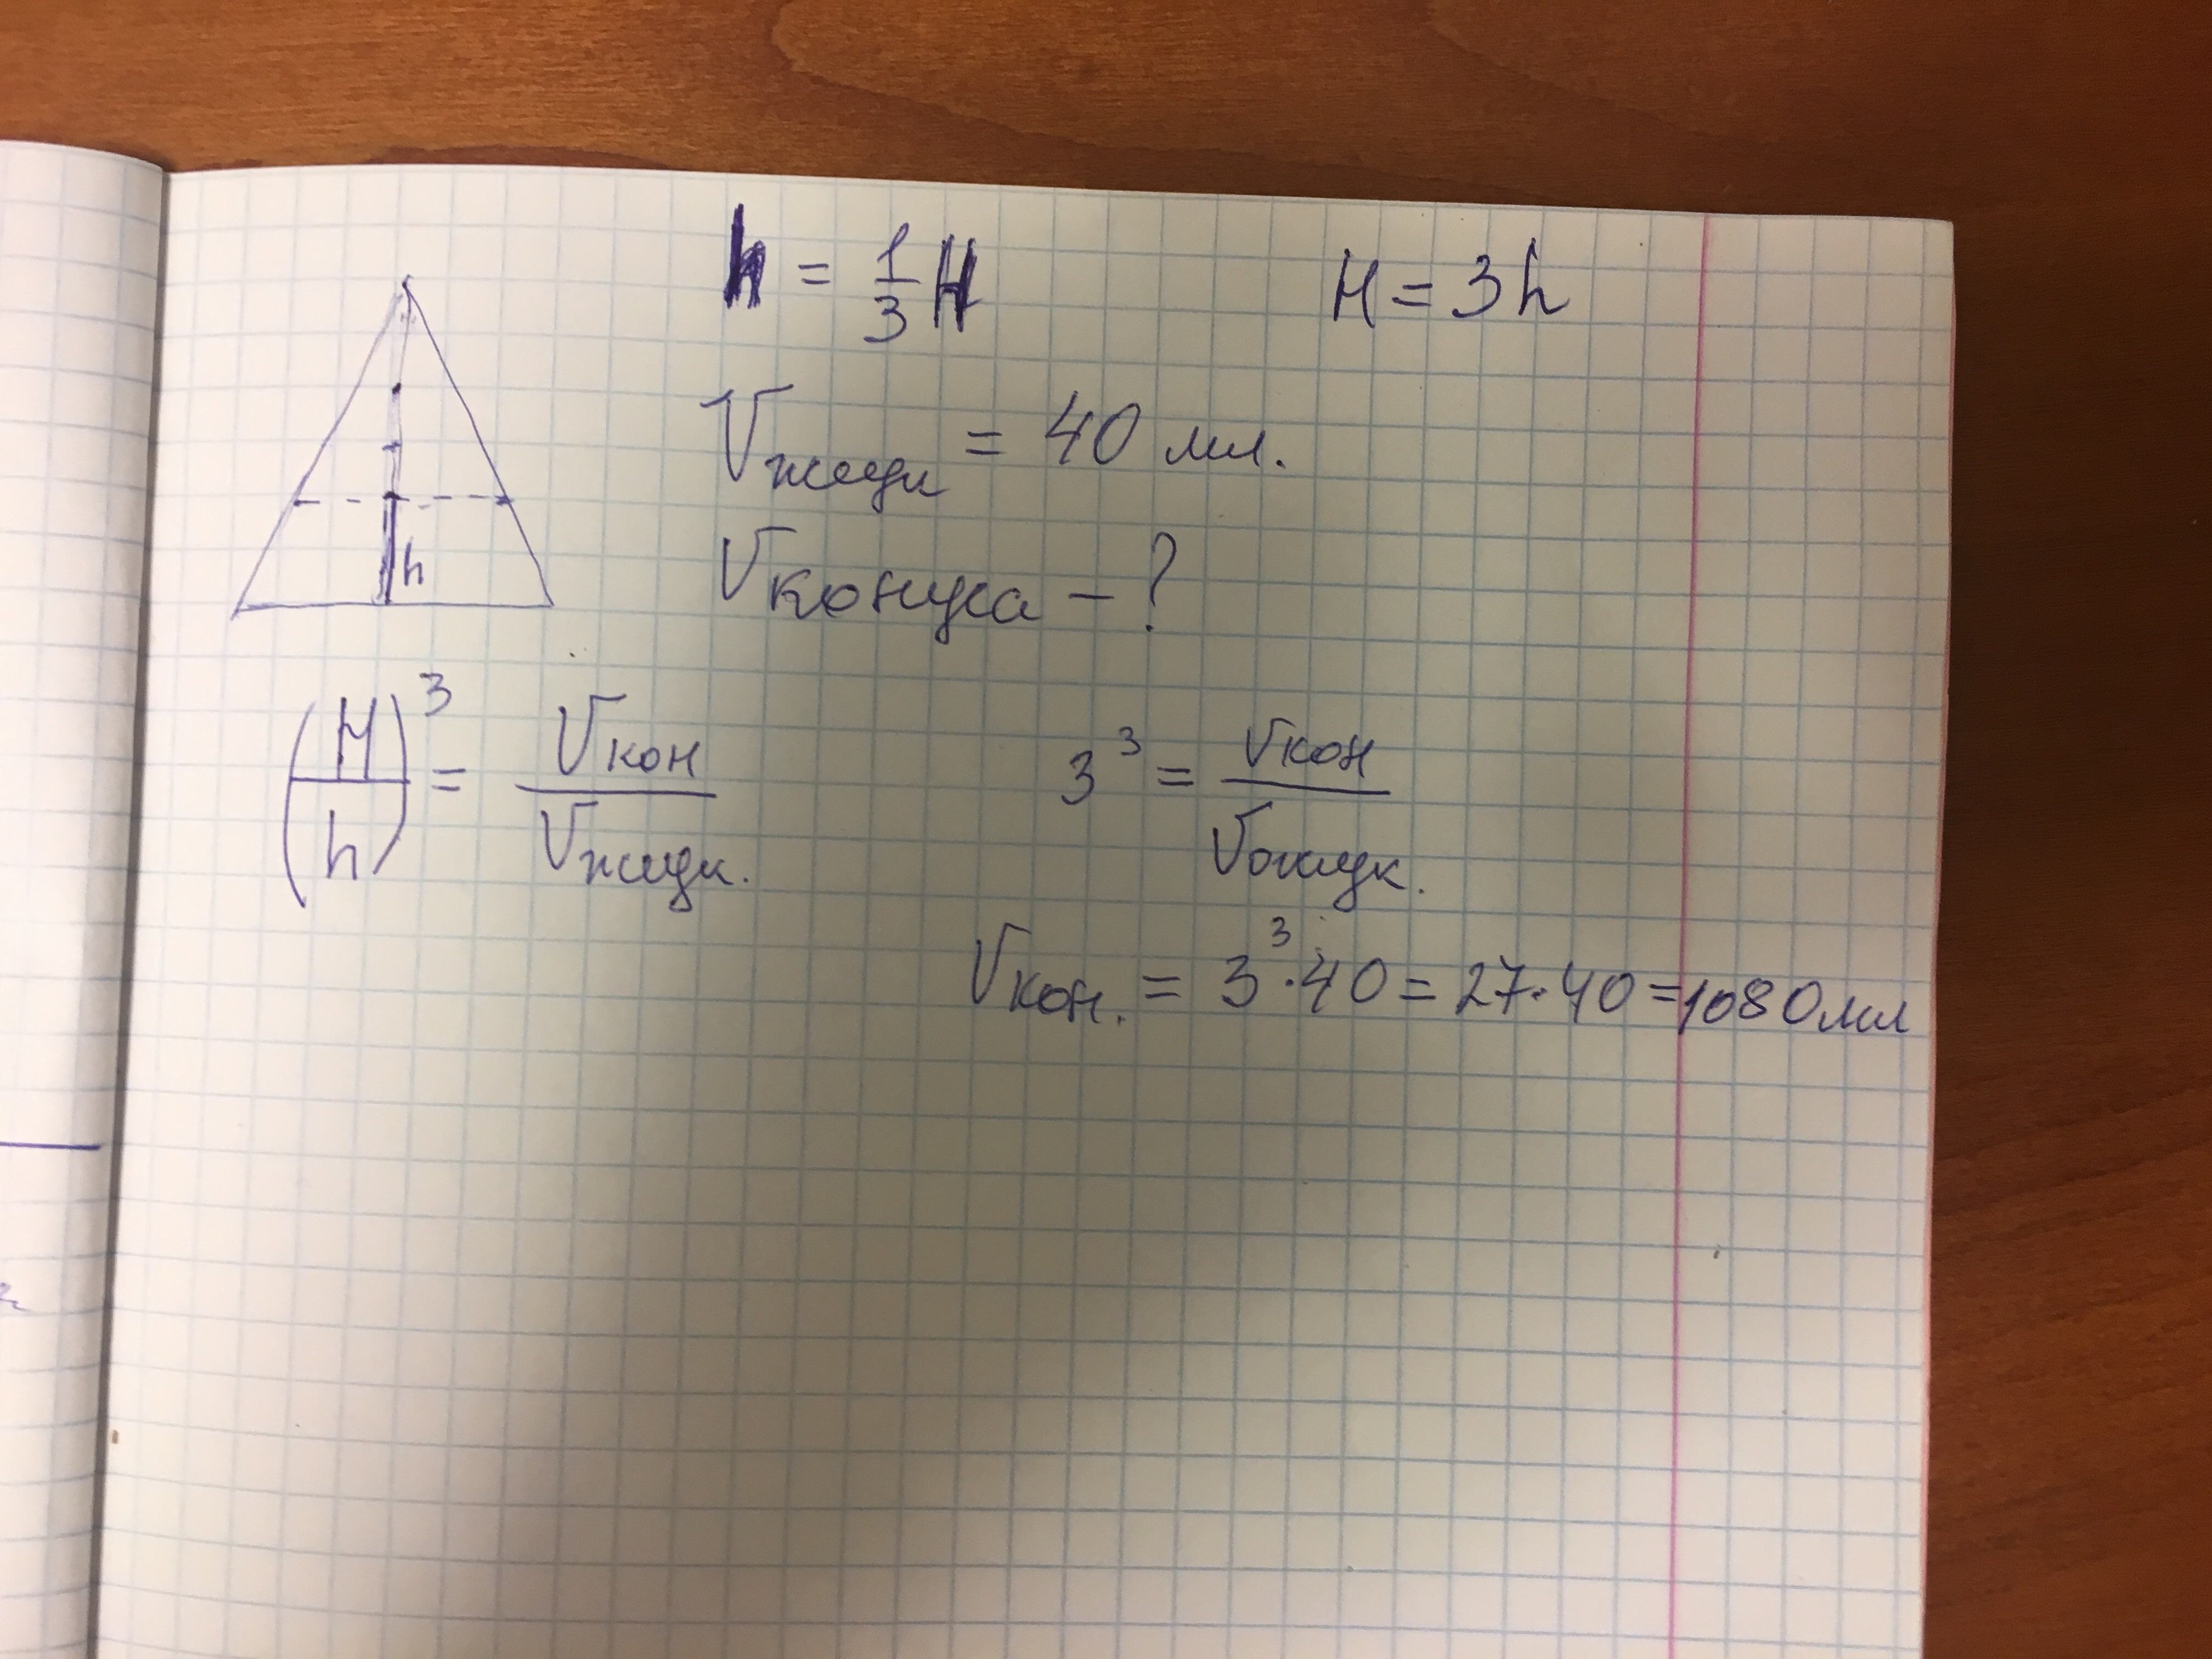 h = 1/3 H H = 3h
Vжидк = 40 мл.
Vконуса – ?
h
(H/h)³ = Vкон/Vжидк. 3³ = Vкон/Vжидк.
Vкон. = 3³·40 = 27·40 = 1080 мл